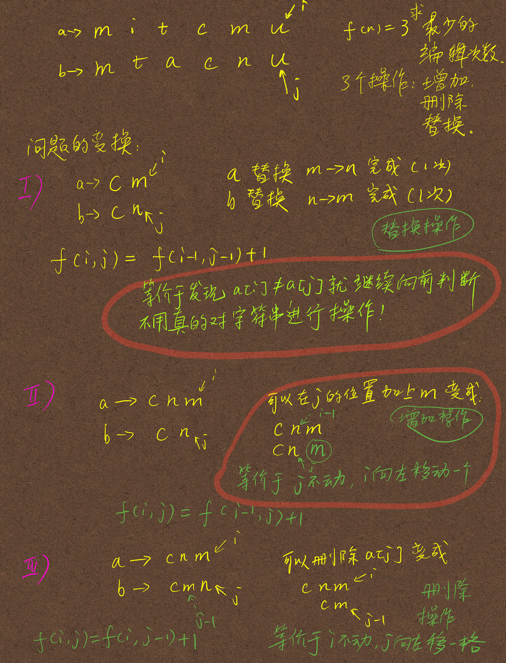 a→ m i t c m u i
b→ m t a c n u j
f(n)=3 求最少的
编辑次数.
3个操作: 增加
删除
替换.
问题的变换:
I)
a→ c m i
b→ c n j
a 替换 m→n 完成(1次)
b 替换 n→m 完成(1次)
替换操作
f(i,j) = f(i-1,j-1)+1
等价于发现 a[i]≠a[j] 就继续向前判断
不用真的对字符串进行操作!
II)
a → c n m i
b → c n j
可以在j的位置加上m 变成:
c n m i-1
c n m
增加操作
等价于 j不动, i向左移动一个
f(i,j) = f(i-1,j)+1
III)
a → c n m i
b → c m n j
j-1
可以删除 a[j] 变成
c n m i
c m j-1
删除
操作
f(i,j)=f(i,j-1)+1
等价于i不动,j向左移一格